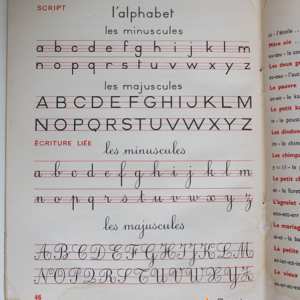 SCRIPT
l'alphabet
les minuscules
a b c d e f g h i j k l m
n o p q r s t u v w x y z
les majuscules
A B C D E F G H I J K L M
N O P Q R S T U V W X Y Z
ÉCRITURE LIÉE
les minuscules
a b c d e f g h i j k l m
n o p q r s t u v w x y z
les majuscules
A B C D E F G H I J K L M
N O P Q R S T U V W X Y Z
46
Mère oie
Les deux
Le pauvre
Le petit
Les dindons
Les chimpa
Le petit ch
L'agnelet
Le mariag
Le petite
Le vieux